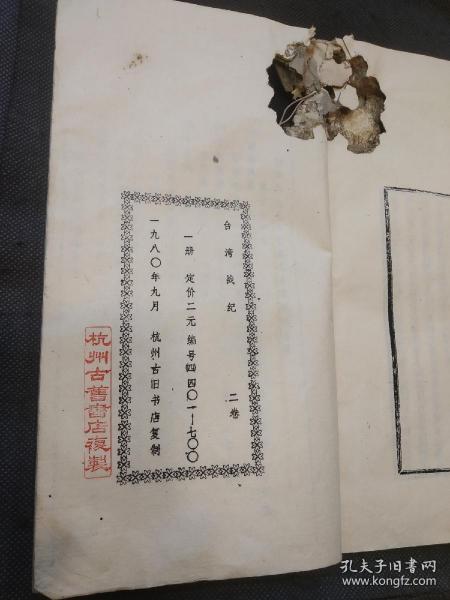 台湾战纪 二卷
一册 定价二元 编号四四〇一—七〇〇
一九八〇年九月 杭州古旧书店复制
杭州古舊書店復製
孔夫子旧书网
www.kongfz.com